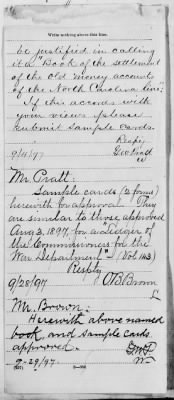 Write nothing above this line.
be justified in calling
it a "Book of the settlement
of the old money account
of the North Carolina line."
If this accords with
your views please
submit sample cards.
Resp'y
9/4/97
Mr. Pratt:
Sample cards (2 forms)
herewith for approval. They
are similar to those approved
Aug 3, 1897, for a "Ledger of
the Commissioners for the
War Department" (Vol 143)
Resp'ly
9/28/97 A B Brown
Mr. Brown:
Herewith above named
book, and sample cards
approved.
9-29/97.